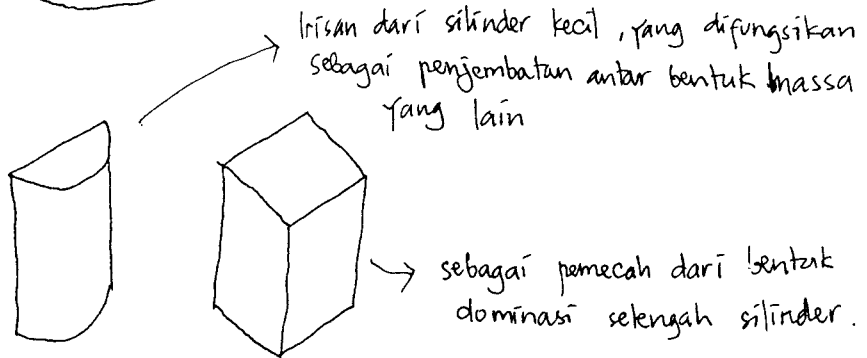 Irisan dari silinder kecil, yang difungsikan
sebagai penjembatan antar bentuk massa
yang lain
sebagai pemecah dari bentuk
dominasi setengah silinder.